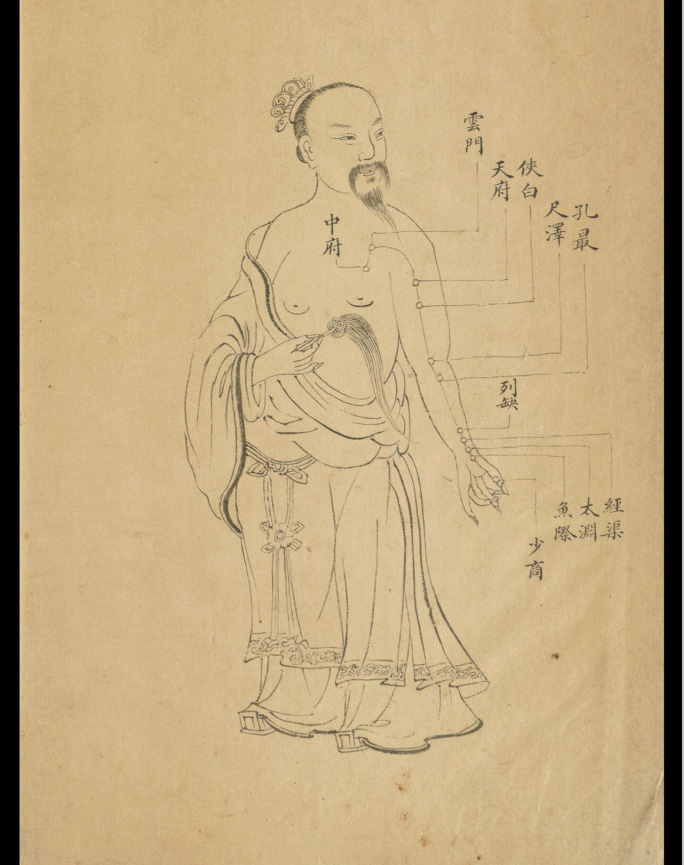 雲門
中府
天府
俠白
尺澤
孔最
列缺
經渠
太淵
魚際
少商